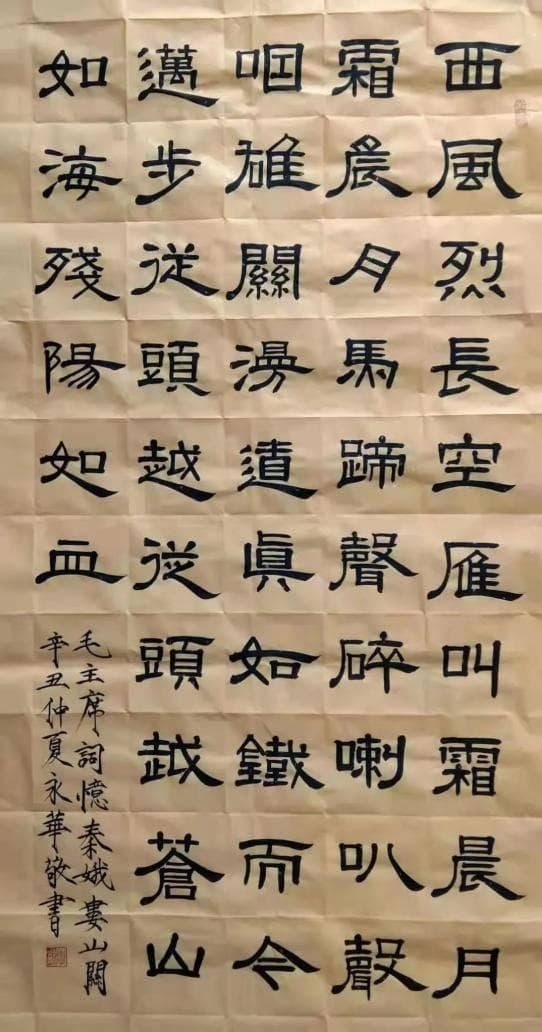 西風烈長空雁叫霜晨月
霜晨月馬蹄聲碎喇叭聲
咽雄關漫道眞如鐵而今
邁步從頭越從頭越蒼山
如海殘陽如血
毛主席詞憶秦娥婁山關
辛丑仲夏永華敬書